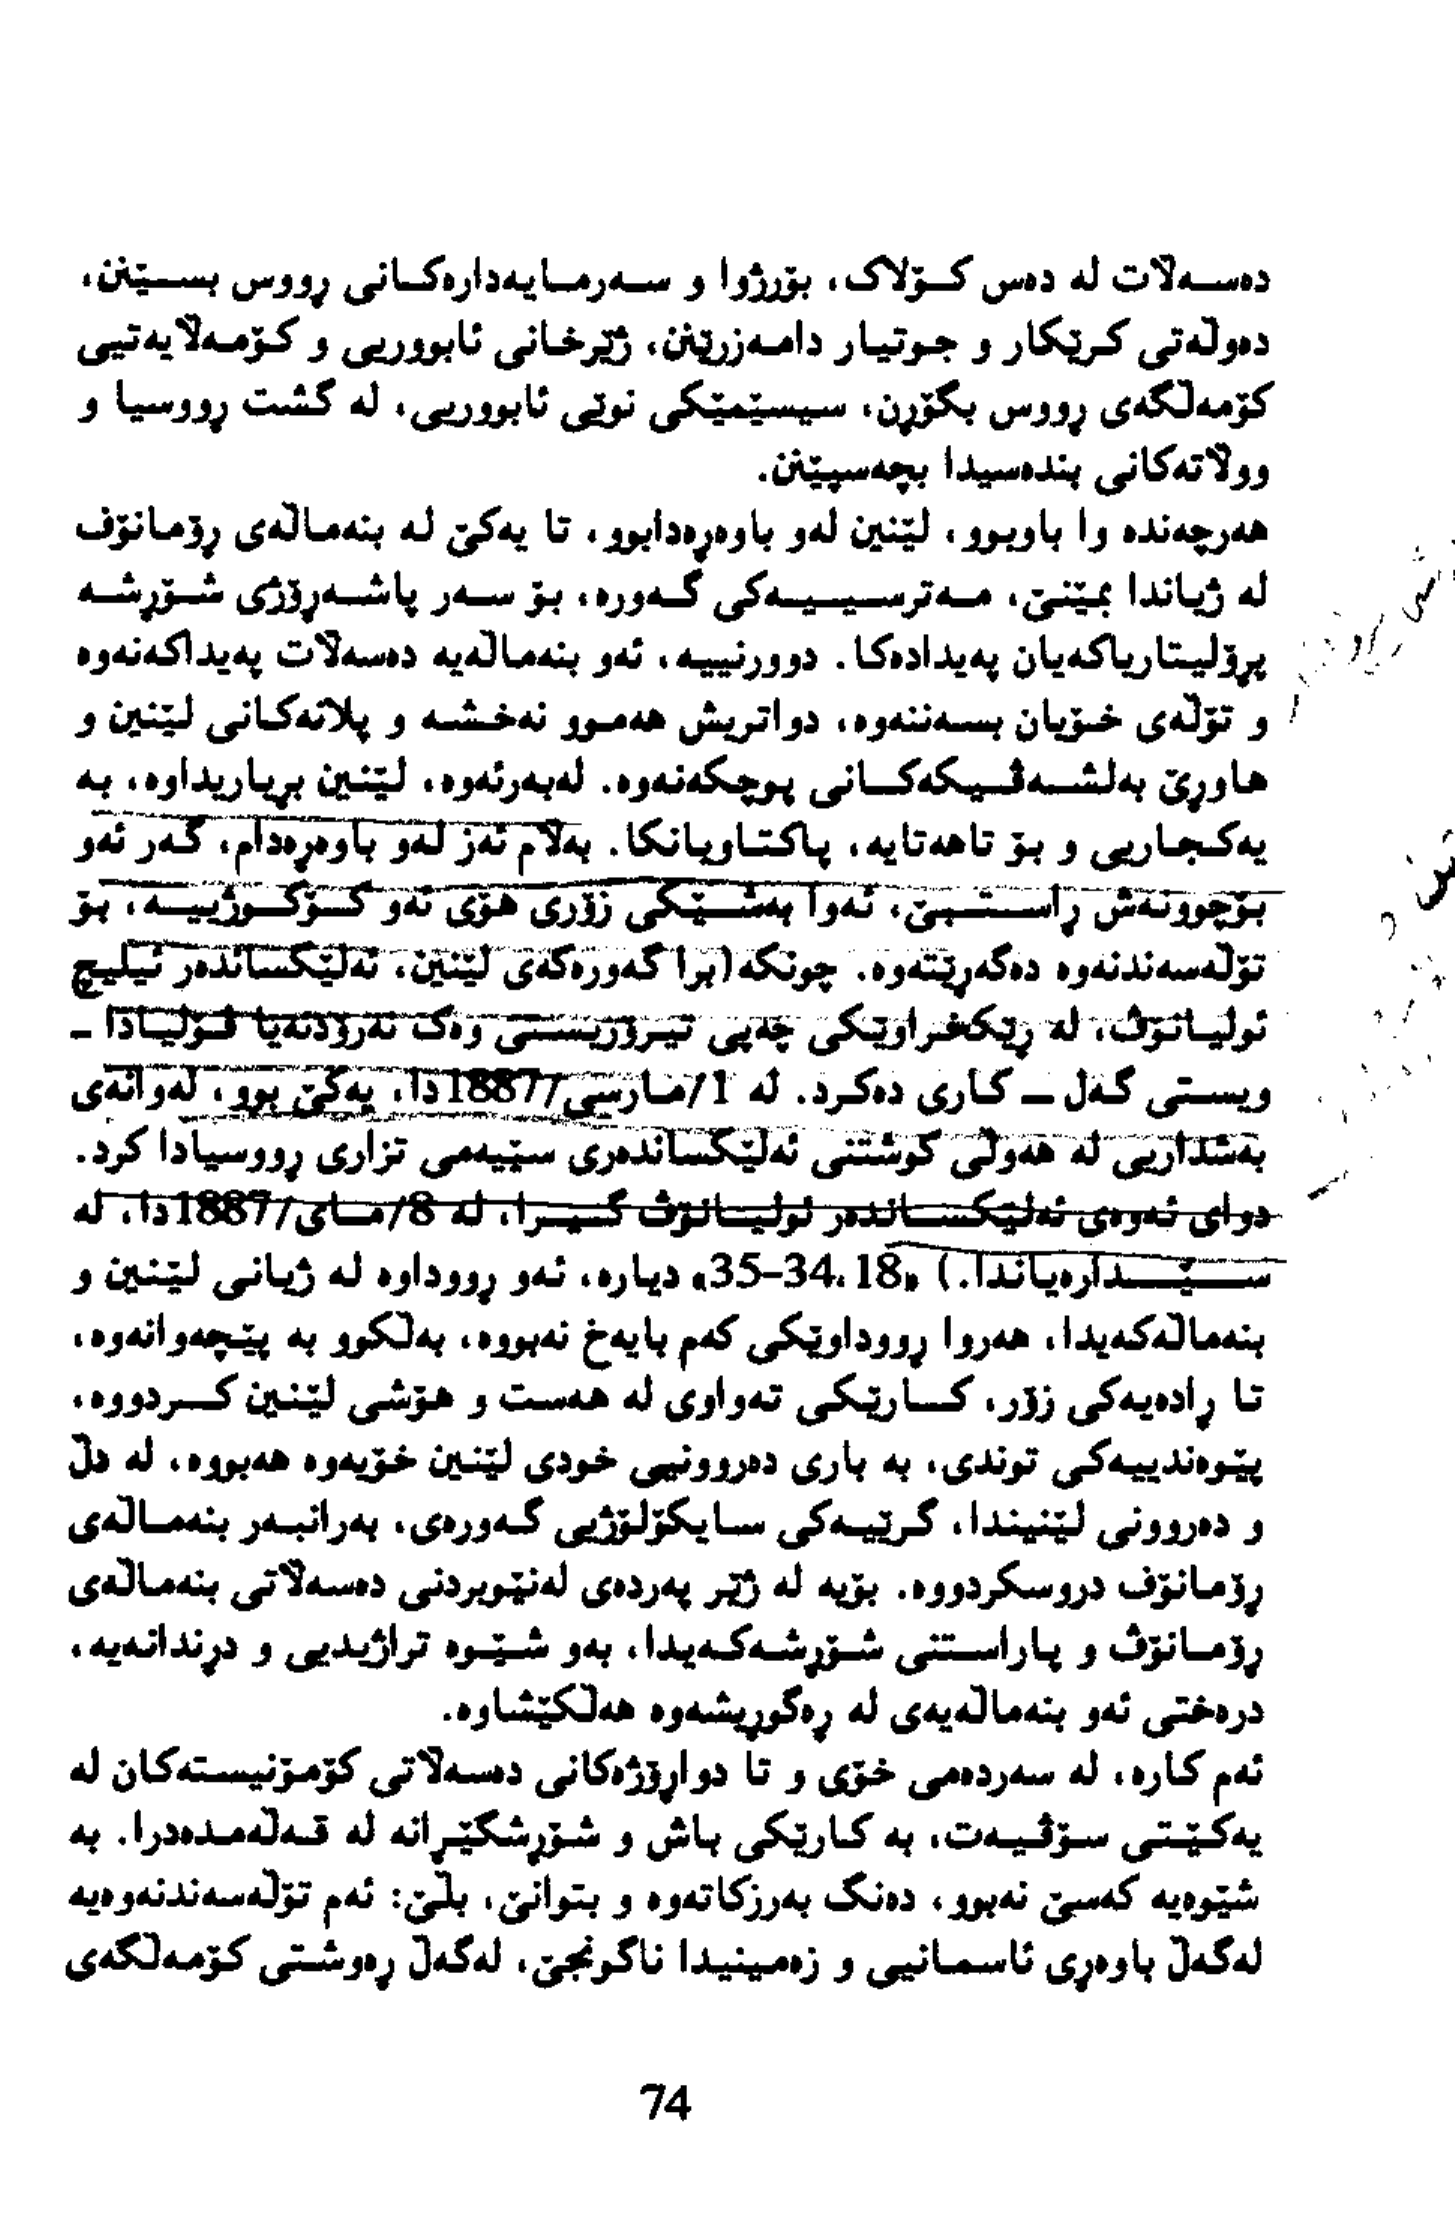 دەسەڵات لە دەس کۆلاک، بۆرژوا و سەرمایەدارەکانی ڕووس بسێنن،
دەوڵەتی کرێکار و جوتیار دامەزرێنن، ژێرخانی ئابووریی و کۆمەڵایەتیی
کۆمەڵگەی ڕووس بگۆڕن، سیستێمێکی نوێی ئابووریی، لە گشت ڕووسیا و
ووڵاتەکانی بندەسیدا بچەسپێنن.
هەرچەندە وا باوبوو، لێنین لەو باوەڕەدابوو، تا یەکێ لە بنەماڵەی ڕۆمانۆف
لە ژیاندا بمێنێ، مەترسییەکی گەورە، بۆ سەر پاشەڕۆژی شۆڕشە
پڕۆلیتاریاکەیان پەیدادەکا. دوورنییە، ئەو بنەماڵەیە دەسەڵات پەیداکەنەوە
و تۆڵەی خۆیان بسەننەوە، دواتریش هەموو نەخشە و پلانەکانی لێنین و
هاوڕێ بەلشەڤیکەکانی پوچکەنەوە. لەبەرئەوە، لێنین بڕیاریداوە، بە
یەکجاریی و بۆ تاهەتایە، پاکتاویانکا. بەڵام ئەز لەو باوەڕەدام، گەر ئەو
بۆچوونەش ڕاستبێ، ئەوا بەشێکی زۆری هۆی ئەو کۆکوژییە، بۆ
تۆڵەسەندنەوە دەگەڕێتەوە. چونکە(برا گەورەکەی لێنین، ئەلێکساندەر ئیلیچ
ئولیانۆڤ، لە ڕێکخراوێکی چەپی تیرۆریستی وەک نەرۆدنەیا ڤۆلیادا ـ
ویستی گەل ـ کاری دەکرد. لە 1/مارسی/1887دا، یەکێ بوو، لەوانەی
بەشداریی لە هەوڵی کوشتنی ئەلێکساندەری سێیەمی تزاری ڕووسیادا کرد.
دوای ئەوەی ئەلێکساندەر ئولیانۆڤ گیرا، لە 8/مای/1887دا، لە
سێدارەیاندا.) «18، 34–35» دیارە، ئەو ڕووداوە لە ژیانی لێنین و
بنەماڵەکەیدا، هەروا ڕووداوێکی کەم بایەخ نەبووە، بەڵکوو بە پێچەوانەوە،
تا ڕادەیەکی زۆر، کارێکی تەواوی لە هەست و هۆشی لێنین کردووە،
پێوەندییەکی توندی، بە باری دەروونیی خودی لێنین خۆیەوە هەبووە، لە دڵ
و دەروونی لێنیندا، گرێیەکی سایکۆلۆژیی گەورەی، بەرانبەر بنەماڵەی
ڕۆمانۆف دروسکردووە. بۆیە لە ژێر پەردەی لەنێوبردنی دەسەڵاتی بنەماڵەی
ڕۆمانۆڤ و پاراستنی شۆڕشەکەیدا، بەو شێوە تراژیدیی و دڕندانەیە،
درەختی ئەو بنەماڵەیەی لە ڕەگوڕیشەوە هەڵکێشاوە.
ئەم کارە، لە سەردەمی خۆی و تا دواڕۆژەکانی دەسەڵاتی کۆمۆنیستەکان لە
یەکێتی سۆڤیەت، بە کارێکی باش و شۆڕشگێڕانە لە قەڵەمدەدرا. بە
شێوەیە کەسێ نەبوو، دەنگ بەرزکاتەوە و بتوانێ، بڵێ: ئەم تۆڵەسەندنەوەیە
لەگەڵ باوەڕی ئاسمانیی و زەمینیدا ناگونجێ، لەگەڵ ڕەوشتی کۆمەڵگەی
74